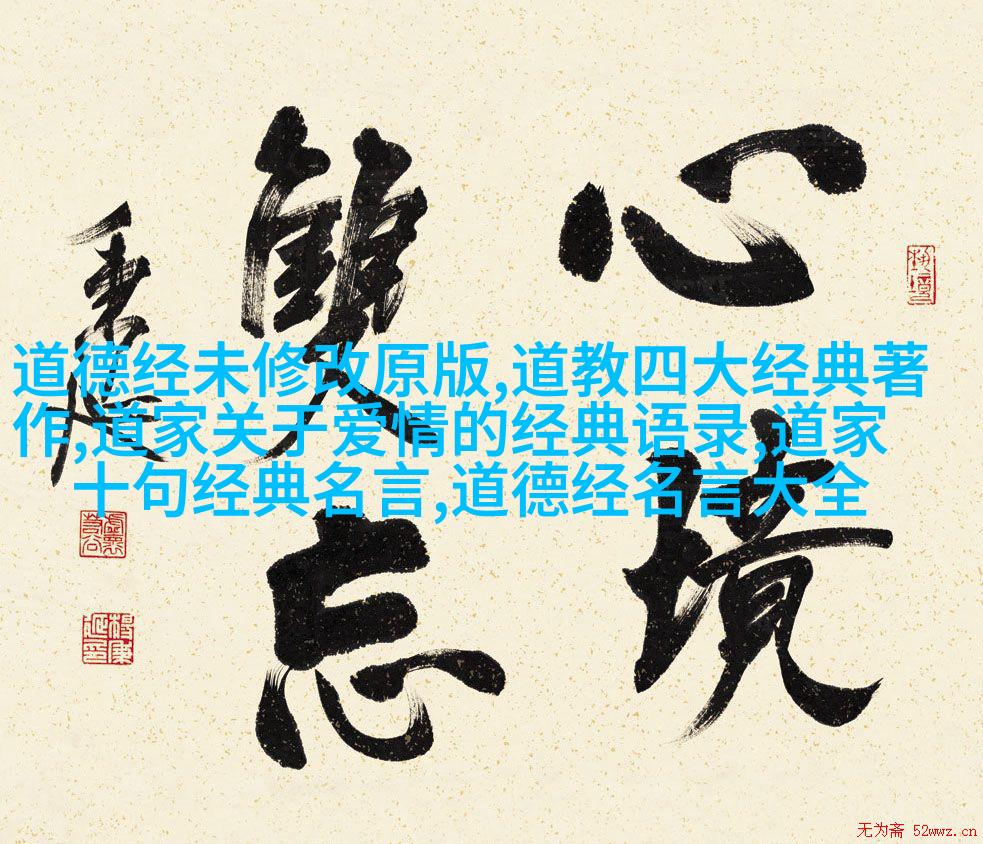 心境
雙忘
秉延
道德经未修改原版,道教四大经典著
作,道家关于爱情的经典语录,道家
十句经典名言,道德经名言大全
无为斋 52wwz.cn